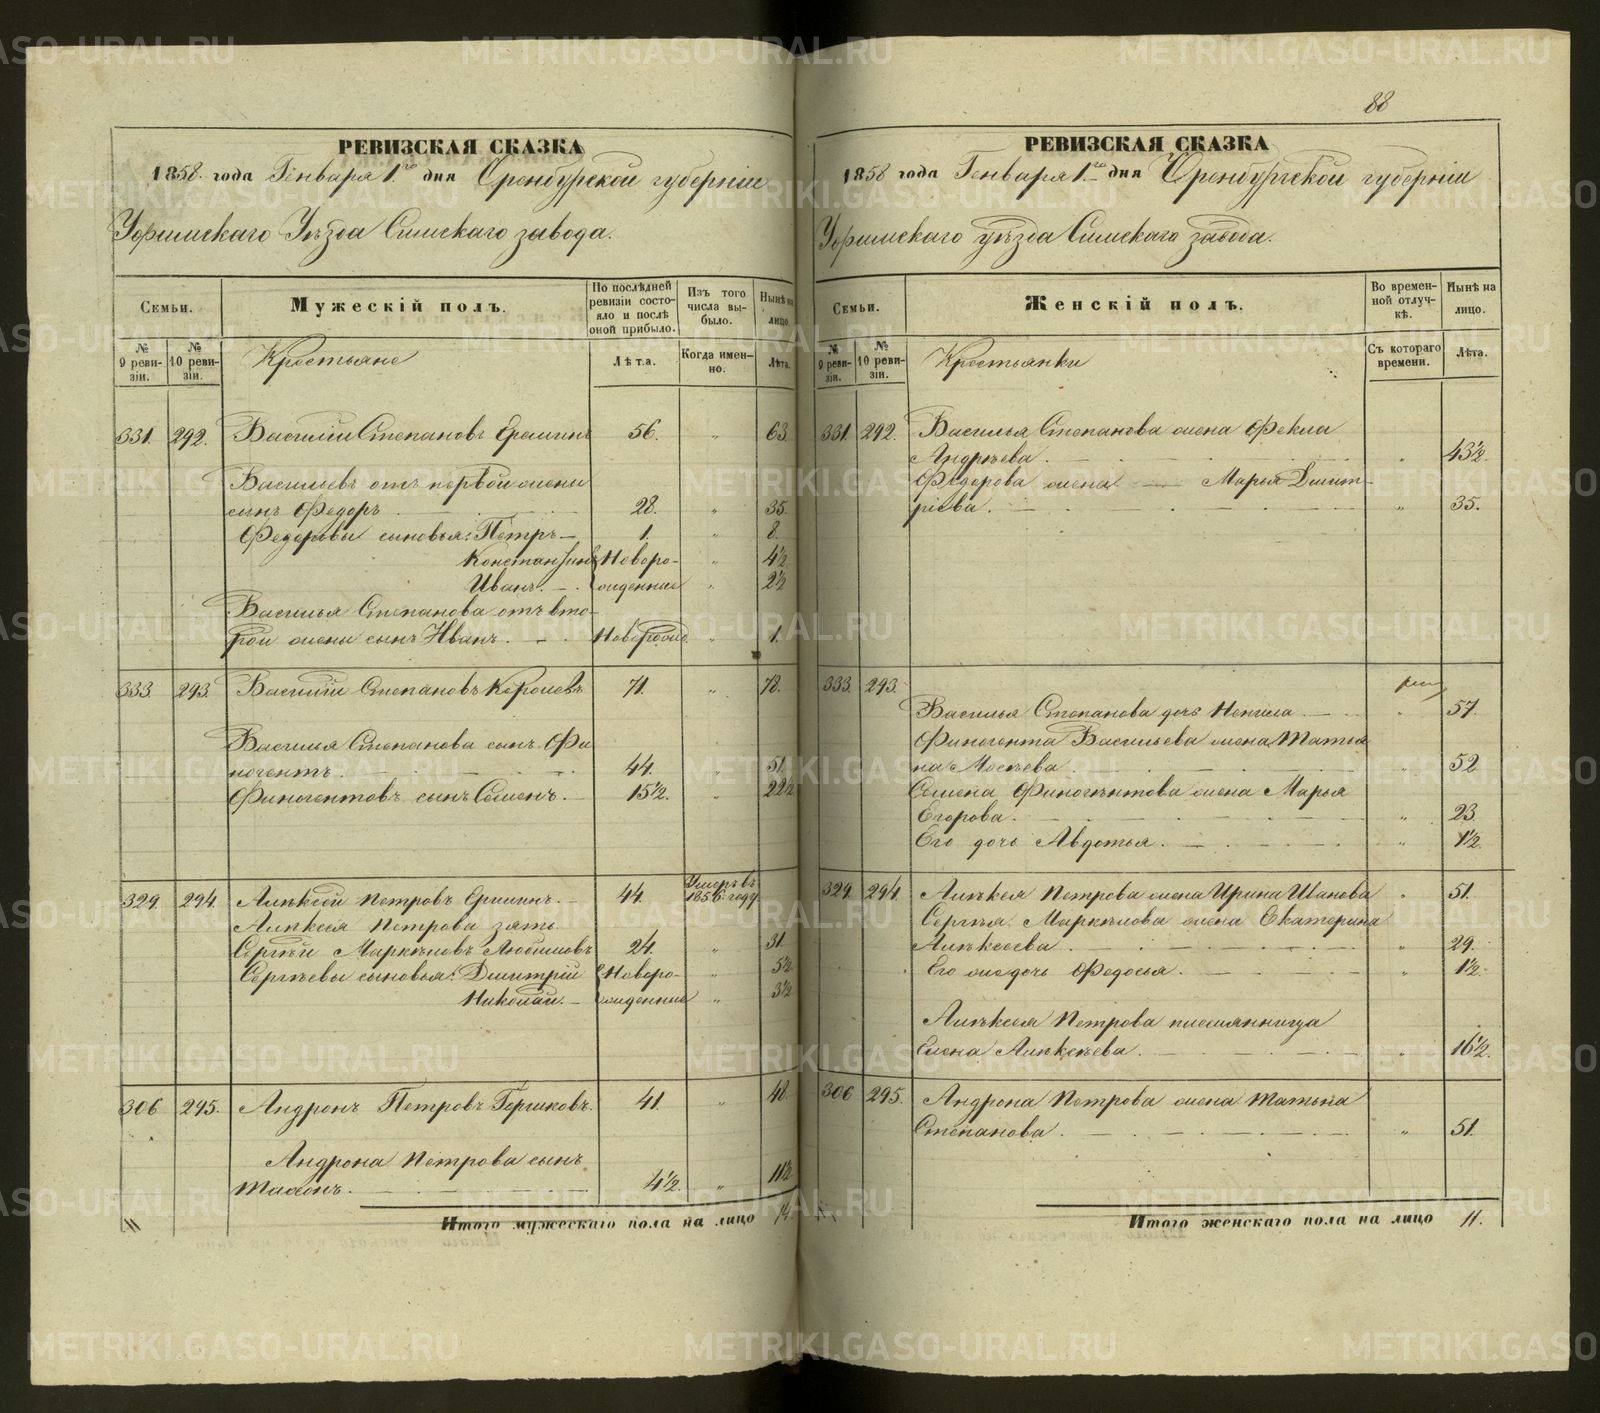 РЕВИЗСКАЯ СКАЗКА
1858. года Генваря 1го дня Оренбургской губерніи
Уфимскаго Уѣзда Симскаго завода.
Семьи.
Мужескій полъ.
По послѣдней ревизіи состояло и послѣ оной прибыло.
Изъ того числа выбыло.
Нынѣ на лицо.
№ 9 ревизіи.
№ 10 ревизіи.
Крестьяне
Лѣта.
Когда именно.
Лѣта.
331. 292. Василій Степановъ Ереминъ 56. „ 63.
Васильевъ отъ первой жены
сынъ Федоръ 28. „ 35.
Федоровы сыновья: Петръ 1. „ 8.
Константинъ Новоро- „ 4½
Иванъ жденные „ 2½
Василья Степанова отъ вто-
рой жены сынъ Иванъ. Новорожд. „ 1.
333. 293. Василій Степановъ Королевъ 71. „ 78.
Василья Степанова сынъ Фи
ногентъ. 44. „ 51.
Финогентовъ сынъ Семенъ. 15½. „ 22½
329. 294. Алексѣй Петровъ Ереминъ. 44. Умеръ въ 1856 году
Алексѣя Петрова зять
Сергѣй Маркеловъ Любимовъ 24. „ 31.
Сергѣевы сыновья: Дмитрій Новоро- „ 5½
Николай. жденные „ 3½
306 295. Андронъ Петровъ Горшковъ. 41. „ 48.
Андрона Петрова сынъ
4½. „ 11½
Итого мужескаго пола на лицо 14.
88
РЕВИЗСКАЯ СКАЗКА
1858 года Генваря 1го дня Оренбургской губерніи
Уфимскаго уѣзда Симскаго завода.
Семьи.
Женскій полъ.
Во временной отлучкѣ.
Нынѣ на лицо.
№ 9 ревизіи.
№ 10 ревизіи.
Крестьянки
Съ котораго времени.
Лѣта.
331. 292. Василья Степанова жена Фекла
Андрѣева. „ 43½.
Федорова жена Марья Дмит-
ріева. „ 35.
333. 293.
Василья Степанова дочь Ненила „ 57.
Финогента Васильева жена Татья
на Мосѣева „ 52
Семена Финогентова жена Марья
Егорова. „ 23.
Его дочь Авдотья. „ 1½.
329. 294. Алексѣя Петрова жена Ирина Иванова „ 51.
Сергѣя Маркелова жена Екатерина
Алексѣева „ 29.
Его же дочь Федосья. „ 1½.
Алексѣя Петрова племянница
Елена Алексѣева. „ 16½.
306 295. Андрона Петрова жена Татьяна
Степанова. „ 51.
Итого женскаго пола на лицо 11.
METRIKI.GASO-URAL.RU